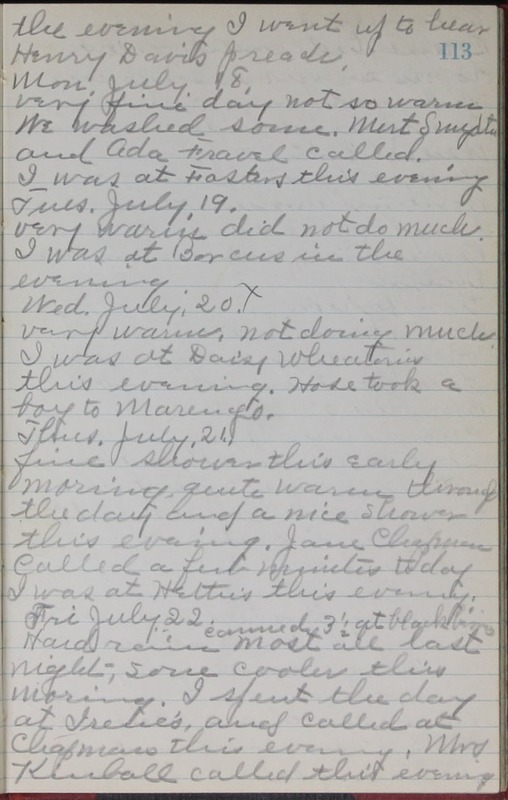 the evening I went up to hear
Henry Davis preach.
113
Mon. July. 18,
very fine day not so warm
We washed some. Mert Smyth
and Ada Fravel called.
I was at Fosters this evening
Tues. July, 19.
very warm did not do much.
I was at Borcus in the
evening
Wed. July, 20. X
very warm, not doing much
I was at Daisy Wheatons
this evening. Hose took a
boy to Marengo.
Thus. July, 21,
fine shower this early
moring, quite warm through
the day and a nice shower
this evening. Jane Chapman
called a few minutes today
I was at Hatties this evening.
Fri July 22.
canned 3½ qt blackberries
Hard rain most all last
night, some cooler this
moring. I spent the day
at and called at
Chapmans this evening, Mrs
Kimball called this evening